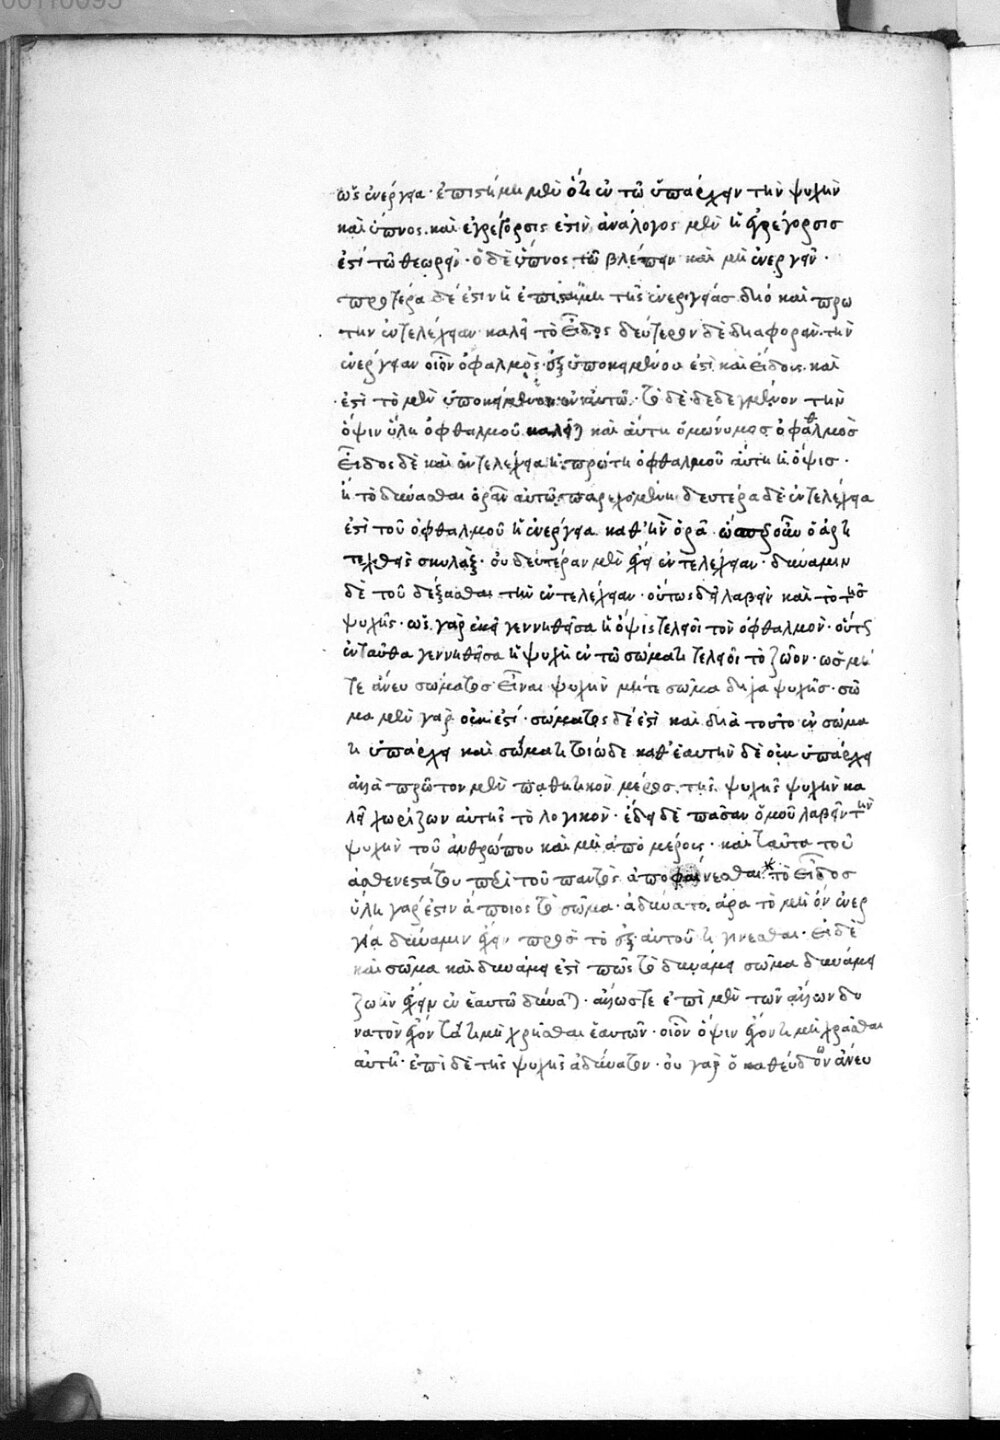 ὡς ἐνέργεια· ἐπιστήμη μὲν ὅτι ἐν τῶ ὑπάρχειν τὴν ψυχὴν
καὶ ὕπνος· καὶ ἐγρήγορσις ἐστὶν ἀνάλογος μὲν ἡ ἐγρήγορσισ
ἐστὶ τῶ θεωρεῖν· ὁ δὲ ὕπνος τῶ βλέπειν καὶ μὴ ἐνεργεῖν·
προτέρα δέ ἐστιν ἡ ἐπιστήμη τῆς ἐνεργείασ διὸ καὶ πρω
την ἐντελέχειαν καλεῖ τὸ εἶδος δεύτερον δὲ διαφορὰν τὴν
ἐνέργειαν οἷον ὀφθαλμὸς ἐξ ὑποκειμένου ἐστὶ καὶ εἴδους· καὶ
ἐστὶ τὸ μὲν ὑποκείμενον ἐν αὐτῶ· τὸ δὲ δεδεγμένον τὴν
ὄψιν ὕλη ὀφθαλμοῦ καλεῖται καὶ αὕτη ὁμώνυμοσ ὀφθαλμὸσ
εἶδος δὲ καὶ ἐντελέχεια ἡ πρώτη ὀφθαλμοῦ αὕτη ἡ ὄψισ·
ἡ τὸ δύνασθαι ὁρᾶν αὐτῶ παρεχομένη δευτέρα δὲ ἐντελέχεια
ἐστὶ τοῦ ὀφθαλμοῦ ἡ ἐνέργεια καθ' ἣν ὁρᾶ· ὁ ἄρτι
τεχθεὶς σκύλαξ· οὐ δευτέραν μὲν ἔχει ἐντελέχειαν· δύναμιν
δὲ τοῦ δέξασθαι τὴν ἐντελέχειαν· οὕτως δεῖ λαβεῖν καὶ τὸ τῆσ
ψυχῆς· ὡς γὰρ ἐκεῖ γεννηθεῖσα ἡ ὄψις τελειοῖ τὸν ὀφθαλμὸν· οὕτως
ἐνταῦθα γεννηθεῖσα ἡ ψυχὴ ἐν τῶ σώματι τελειοῖ τὸ ζῶον· ὡς μή
τε ἄνευ σώματοσ εἶναι ψυχὴν μήτε σῶμα δίχα ψυχῆσ· σῶ
μα μὲν γὰρ οὐκ ἐστί· σώματος δέ ἐστὶ καὶ διὰ τοῦτο ἐν σώμα
τι ὑπάρχει καὶ σώματι τοιῶδε καθ' ἑαυτὴν δὲ οὐκ ὑπάρχει
ἀλλὰ πρῶτον μὲν παθητικὸν μέρος τῆς ψυχῆς ψυχὴν κα
λεῖ χωρίζων αὐτῆς τὸ λογικὸν· ἔδει δὲ πᾶσαν ὁμοῦ λαβεῖν τὴν
ψυχὴν τοῦ ἀνθρώπου καὶ μὴ ἀπὸ μέρους· καὶ ταῦτα τοῦ
ἀσθενεστάτου περὶ τοῦ παντὸς ἀποφαίνεσθαι τὸ εἶδοσ
ὕλη γάρ ἐστιν ἄποιος τὸ σῶμα· ἀδύνατο ἄρα τὸ μὴ ὂν ἐνερ
γείᾳ δύναμιν ἔχειν πρὸσ τὸ ἐξ αὐτοῦ τι γίνεσθαι· εἰ δὲ
καὶ σῶμα καὶ δυνάμει ἐστὶ πῶς τὸ δυνάμει σῶμα δυνάμει
ζωὴν ἔχειν ἐν ἑαυτῶ δύναται· ἄλλωστε ἐπὶ μὲν τῶν ἄλλων δυ
νατὸν ἔχοντά τι μὴ χρῆσθαι ἑαυτῶν· οἷον ὄψιν ἔχοντι μὴ χρᾶσθαι
αὐτῆ· ἐπὶ δὲ τῆς ψυχῆς ἀδύνατον· οὐ γὰρ ὁ καθεύδων ἄνευ